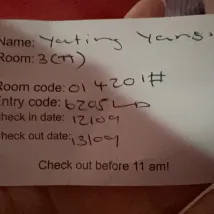 Name: Yating Yang
Room: 3(T1)
Room code: 014201#
Entry code: 6205LD
check in date: 12/09
check out date: 13/09
Check out before 11 am!